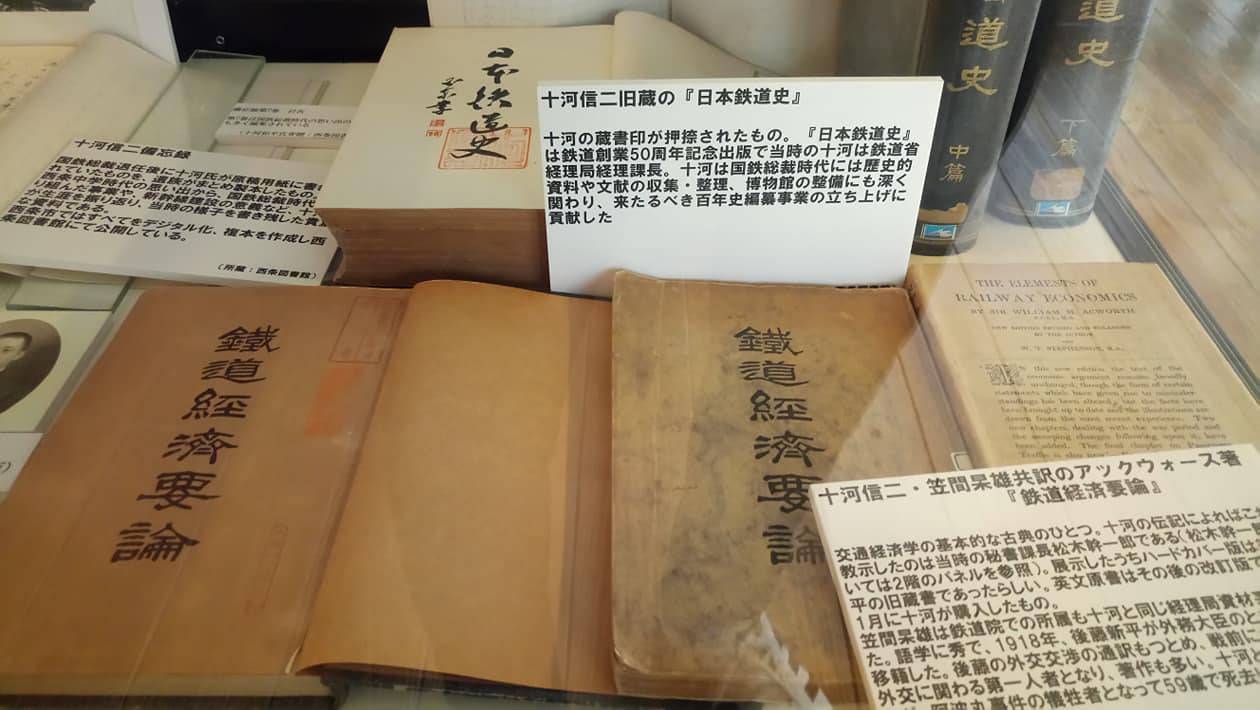 日本鉄道史
十河信二旧蔵の『日本鉄道史』
十河の蔵書印が押捺されたもの。『日本鉄道史』
は鉄道創業50周年記念出版で当時の十河は鉄道省
経理局経理課長。十河は国鉄総裁時代には歴史的
資料や文献の収集・整理、博物館の整備にも深く
関わり、来たるべき百年史編纂事業の立ち上げに
貢献した
道史
中篇
道史
下篇
十河信二備忘録
国鉄総裁退任後に十河氏が原稿用紙に書
れていたものを、遺族がまとめ製本したもの。
西条市長時代の思い出から、国鉄総裁時代
り組んだ事業、新幹線建設の歴史などと、十
が全生涯を振り返り、当時の様子を書き残した貴
な資料である。
条市ではすべてをデジタル化、複本を作成し西
条図書館にて公開している。
(所蔵:西条図書館)
鐵道經濟要論
鐵道經濟要論
THE ELEMENTS OF
RAILWAY ECONOMICS
BY SIR WILLIAM M. ACWORTH
NEW EDITION REVISED AND ENLARGED
BY THE AUTHOR
AND
W. T. STEPHENSON, B.A.
IN this new edition the text of the
economic argument remains broadly
unchanged, though the form of certain
statements which have given rise to misunder-
standings has been altered, but the facts have
been brought up to date and the illustrations are
drawn from the most recent experience. Two
new chapters dealing with the war period and
the sweeping changes following upon it, have
been added. The final chapter on Passenger
Traffic is also new.
十河信二・笠間杲雄共訳のアックウォース著
『鉄道経済要論』
交通経済学の基本的な古典のひとつ。十河の伝記によればこ
教示したのは当時の秘書課長松木幹一郎である(松木幹一
いては2階のパネルを参照)。展示したうちハードカバー版は
平の旧蔵書であったらしい。英文原書はその後の改訂版で
1月に十河が購入したもの。
笠間杲雄は鉄道院での所属も十河と同じ経理局資材
た。語学に秀で、1918年、後藤新平が外務大臣のと
移籍した。後藤の外交交渉の通訳もつとめ、戦前に
外交に関わる第一人者となり、著作も多い。十河
阿波丸事件の犠牲者となって59歳で死去